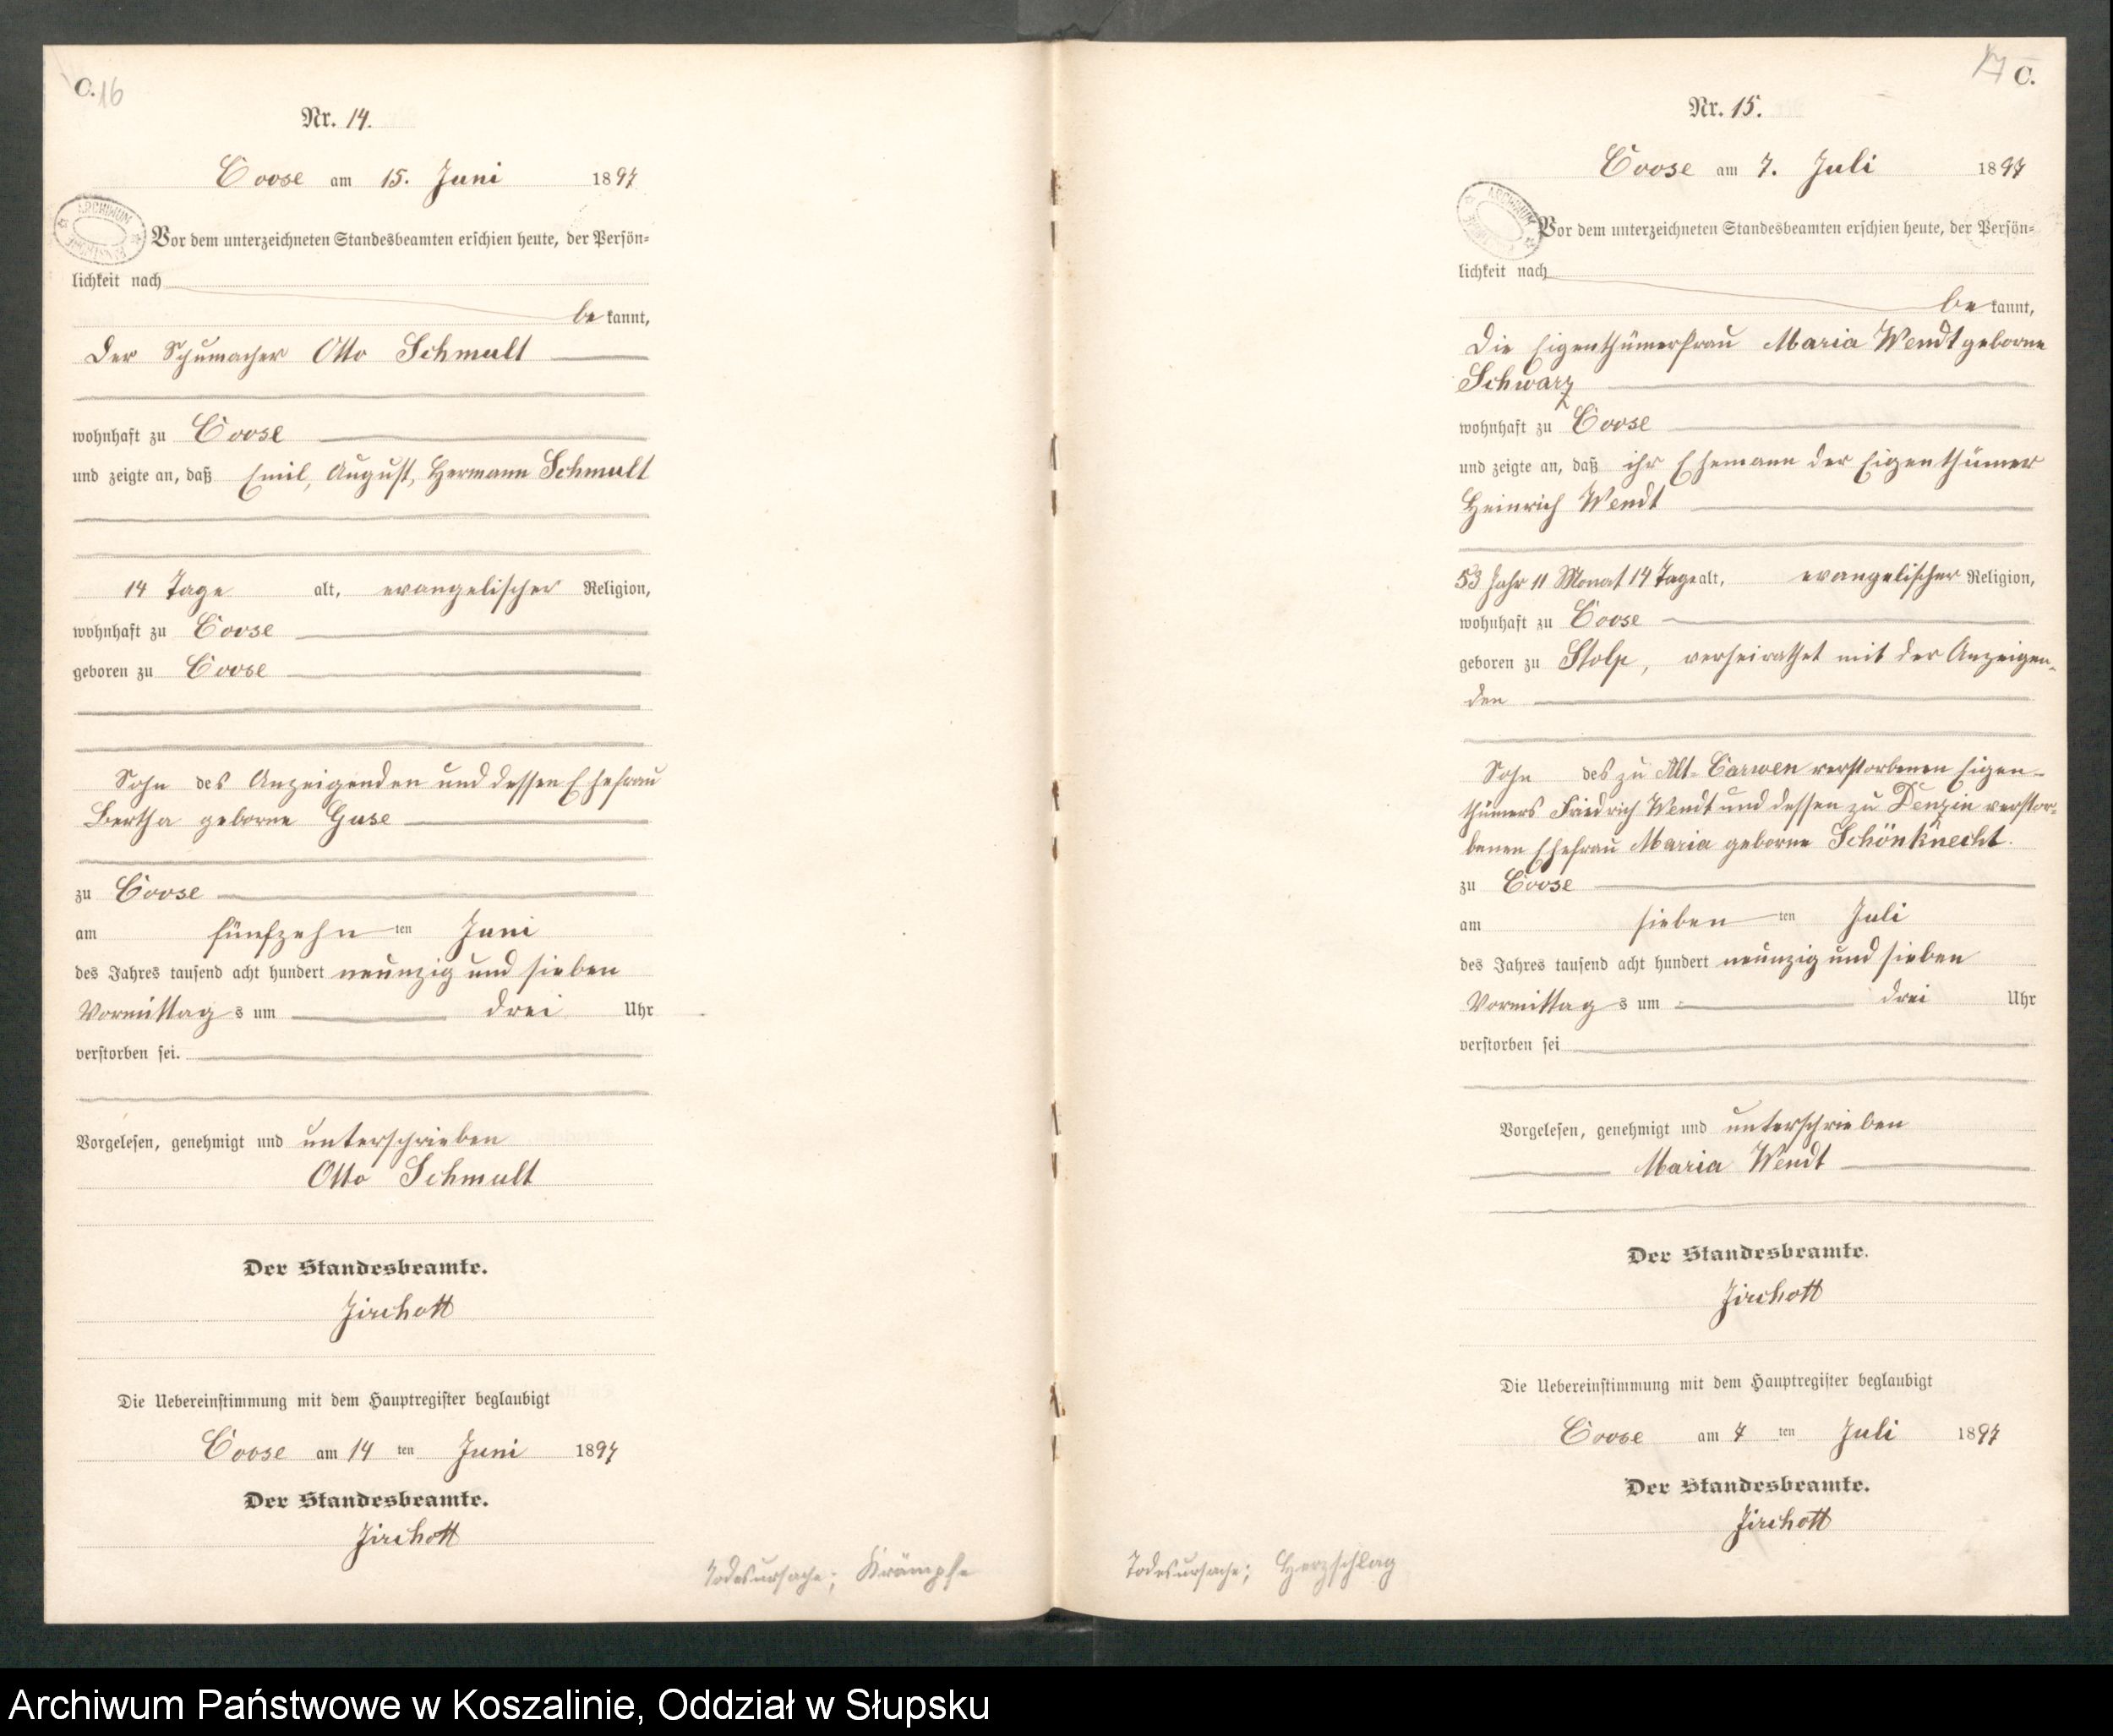 C. 16
Nr. 14.
Coose am 15. Juni 1897
Vor dem unterzeichneten Standesbeamten erschien heute, der Persön=
lichkeit nach
be kannt,
der Schumacher Otto Schmult
wohnhaft zu Coose
und zeigte an, daß Emil, August, Hermann Schmult
14 Tage alt, evangelischer Religion,
wohnhaft zu Coose
geboren zu Coose
Sohn des Anzeigenden und dessen Ehefrau
Bertha geborne Guse
zu Coose
am fünfzehn ten Juni
des Jahres tausend acht hundert neunzig und sieben
Vormittag s um drei Uhr
verstorben sei.
Vorgelesen, genehmigt und unterschrieben
Otto Schmult
Der Standesbeamte.
Zirchott
Die Uebereinstimmung mit dem Hauptregister beglaubigt
Coose am 14 ten Juni 1897
Der Standesbeamte.
Zirchott
Todesursache; Krämpfe
17 C.
Nr. 15.
Coose am 7. Juli 1897
ARCHIWUM
Vor dem unterzeichneten Standesbeamten erschien heute, der Persön=
lichkeit nach
be kannt,
die Eigenthümerfrau Maria Wendt geborne
Schwarz
wohnhaft zu Coose
und zeigte an, daß ihr Ehemann der Eigenthümer
Heinrich Wendt
53 Jahr 11 Monat 14 Tage alt, evangelischer Religion,
wohnhaft zu Coose
geboren zu Stolp, verheirathet mit der Anzeigen-
den
Sohn des zu Alt-Carwen verstorbenen Eigen-
thümers Friedrich Wendt und dessen zu Denzin verstor-
benen Ehefrau Maria geborne Schönknecht.
zu Coose
am sieben ten Juli
des Jahres tausend acht hundert neunzig und sieben
Vormittag s um drei Uhr
verstorben sei
Vorgelesen, genehmigt und unterschrieben
Maria Wendt
Der Standesbeamte.
Zirchott
Die Uebereinstimmung mit dem Hauptregister beglaubigt
Coose am 7 ten Juli 1897
Der Standesbeamte.
Zirchott
Todesursache; Herzschlag
Archiwum Państwowe w Koszalinie, Oddział w Słupsku